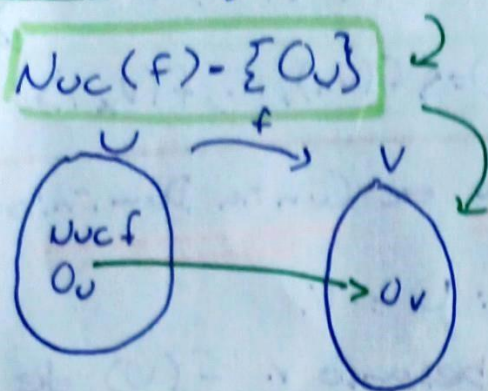 Nuc(f) = {0u}
U f V
Nuc f
0u 0v